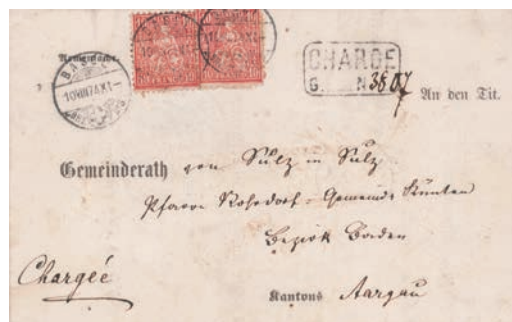 Armensache.
BASEL
CHARGE
G. N 3807
An den Tit.
Gemeinderath von Sülz in Sülz
Pfarre Rohrdorf - Gemeinde Künten
Bezirk Baden
Chargeé
Kantons Aargau